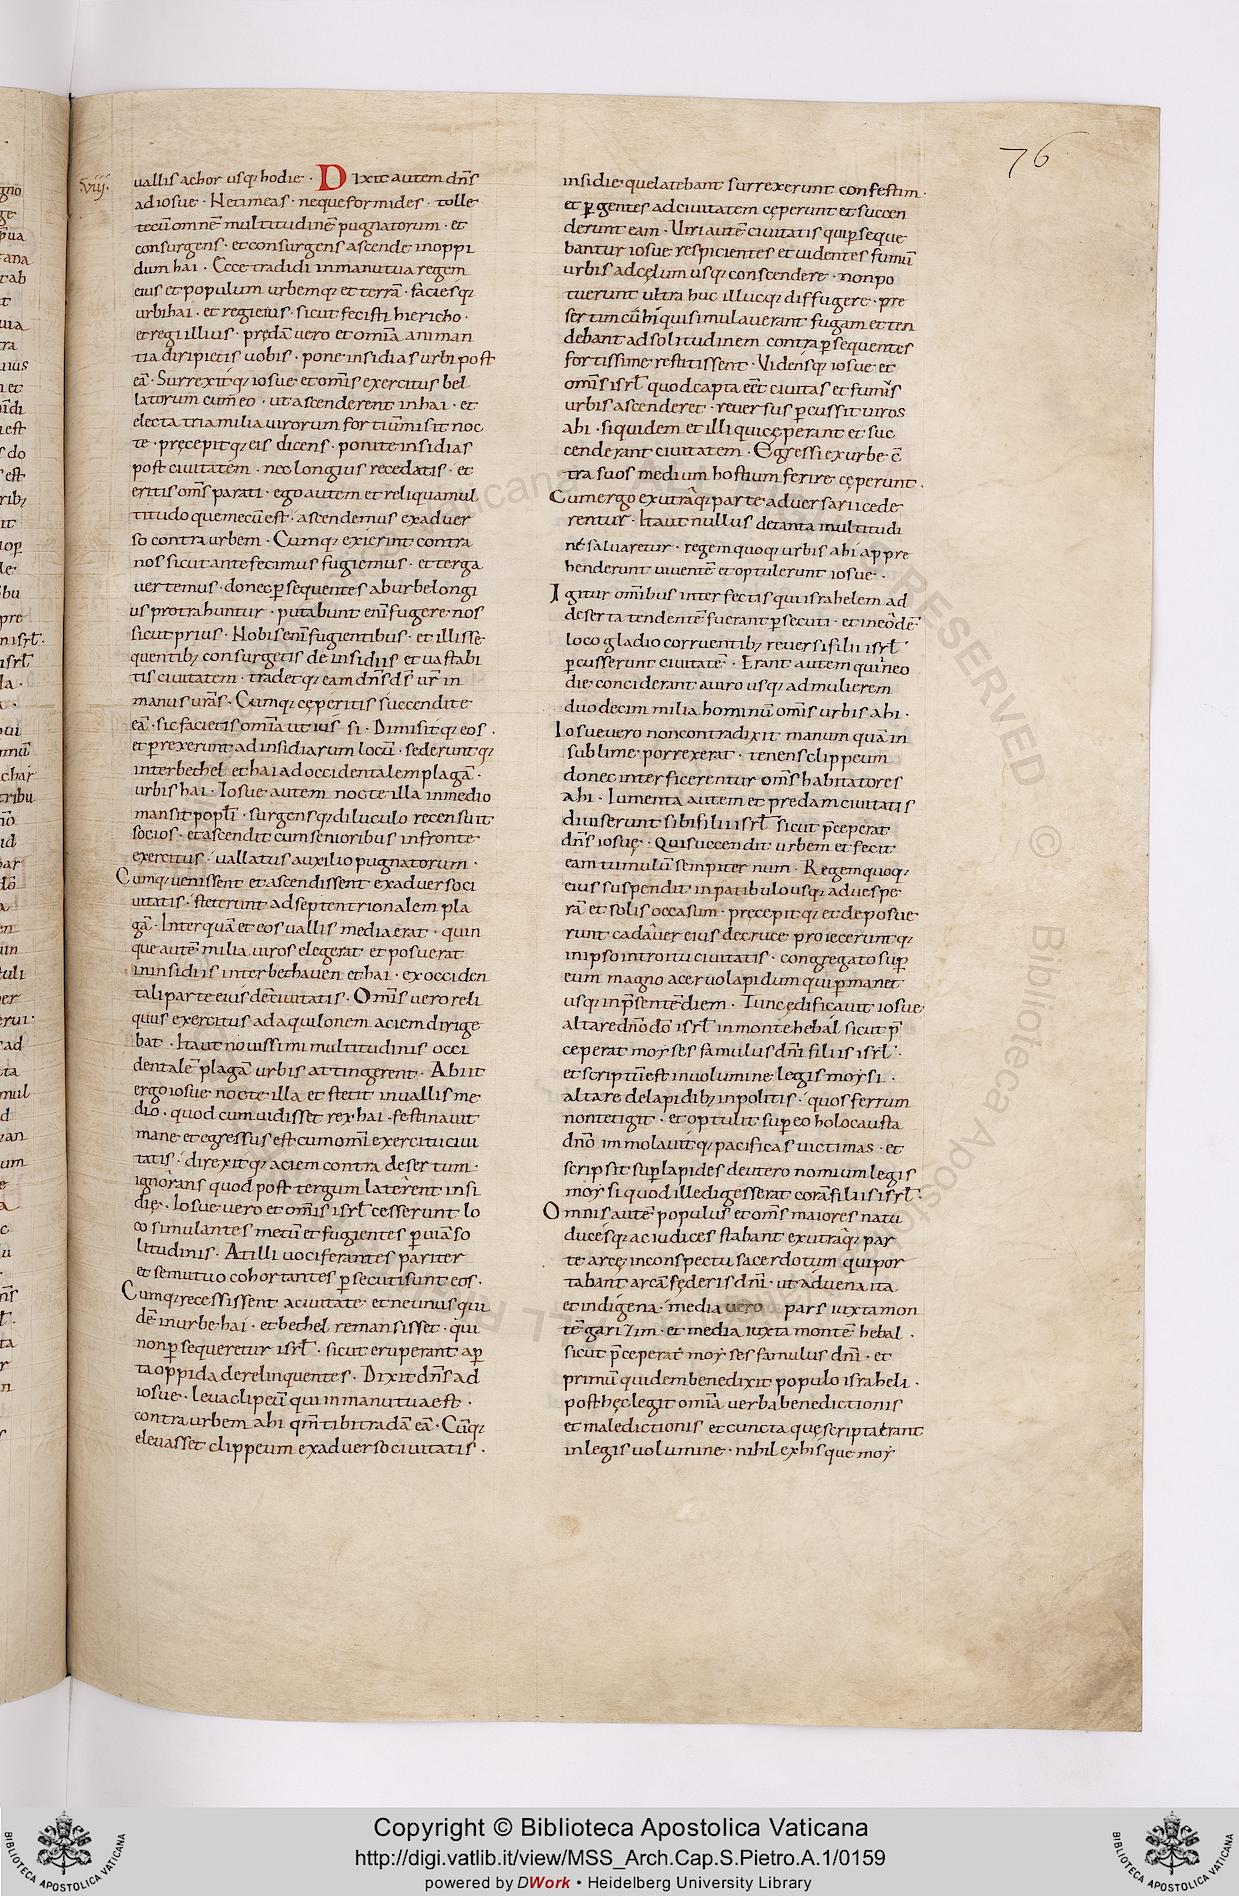 76
.viij.
vallis achor usq; hodie · Dixit autem dñs
ad iosue · Ne timeas · neque formides · tolle
tecũ omnẽ multitudinẽ pugnatorum · et
consurgens · et consurgens ascende in oppi
dum hai · Ecce tradidi in manu tua regem
eius et populum urbemq; et terrã · faciesq;
urbi hai · et regi eius · sicut fecisti hiericho ·
et regi illius · prędã vero et om̃ia animan
tia diripietis vobis · pone insidias urbi post
eã · Surrexitq; iosue et om̃is exercitus bel
latorum cum eo · ut ascenderent in hai · et
electa tria milia virorum fortiũ misit noc
te · pręcepitq; eis dicens · ponite insidias
post civitatem · nec longius recedatis · et
eritis om̃s parati · ego autem et reliqua mul
titudo que mecũ est · ascendemus ex adver
so contra urbem · Cumq; exierint contra
nos sicut ante fecimus fugiemus · et terga
vertemus · donec p̱sequentes ab urbe longi
us protrahuntur · putabunt eni᷑ fugere nos
sicut prius · Nobis eni᷑ fugientibus · et illis se
quentib; consurgetis de insidiis et vastabi
tis civitatem · tradetq; eam dñs ds̃ ur̃ in
manus ur̃as · Cumq; cęperitis succendite
eã · sic facietis om̃ia ut ius si · Dimisitq; eos ·
et p̱rexerunt ad insidiarum locũ · sederuntq;
inter bethel et hai ad occidentalem plagã ·
urbis hai · Iosue autem nocte illa in medio
mansit popl̃i · surgensq; diluculo recensuit
socios · et ascendit cum senioribus in fronte
exercitus · vallatus auxilio pugnatorum ·
Cumq; venissent et ascendissent ex adverso ci
vitatis · steterunt ad septentrionalem pla
gã · Inter quã et eos vallis media erat · quin
que autẽ milia viros elegerat et posuerat
in insidiis inter bethaven et hai · ex occiden
tali parte eius dẽ civitatis · Om̃is vero reli
quus exercitus ad aquilonem aciem dirige
bat · Ita ut novissimi multitudinis occi
dentalẽ plagã urbis attingerent · Abiit
ergo iosue nocte illa et stetit in vallis me
dio · quod cum vidisset rex hai · festinavit
mane et egressus est cum om̃i exercitu civi
tatis · direxitq; aciem contra desertum ·
ignorans quod post tergum laterent insi
dię · Iosue vero et om̃is isrl̃ cesserunt lo
co simulantes metũ et fugientes p̱ viã so
litudinis · At illi vociferantes pariter
et se mutuo cohortantes p̱secuti sunt eos ·
Cumq; recessissent a civitate et ne unus qui
dẽ in urbe hai · et bethel remansisset · qui
non p̱sequeretur isrl̃ · sicut eruperant ap̱
ta oppida derelinquentes · Dixit dñs ad
iosue · leva clipeũ qui in manu tua est ·
contra urbem ahi qm̃ tibi tradã eã · Cũq;
elevasset clippeum ex adverso civitatis ·
insidie que latebant surrexerunt confestim ·
et p̱gentes ad civitatem cęperunt et succen
derunt eam · Viri autẽ civitatis qui p̱seque
bantur iosue respicientes et videntes fumũ
urbis ad cęlum usq; conscendere · non po
tuerunt ultra huc illucq; diffugere · pre
sertim cũ hi᷑ qui simulaverant fugam et ten
debant ad solitudinem contra p̱sequentes
fortissime restitissent · Vidensq; iosue et
om̃is isrl̃ quod capta eẽt civitas et fumus
urbis ascenderet · reversus p̱cussit viros
ahi · siquidem et illi qui cęperant et suc
cenderant civitatem · Egressi ex urbe cõ
tra suos medium hostium ferire cęperunt ·
Cum ergo ex utraq; parte adversarii cede
rentur · Ita ut nullus de tanta multitudi
ne salvaretur · regem quoq; urbis ahi appre
henderunt viventẽ et optulerunt iosue ·
Igitur om̃ibus interfectis qui israhelem ad
deserta tendentẽ fuerant p̱secuti · et in eodẽ
loco gladio corruentib; reversi filii isrl̃
p̱cusserunt civitatẽ · Erant autem qui in eo
die conciderant a viro usq; ad mulierem
duodecim milia hominũ om̃is urbis ahi ·
Iosue vero non contradixit manum quã in
sublime porrexerat · tenens clippeum
donec interficerentur om̃s habitatores
ahi · Iumenta autem et predam civitatis
diviserunt sibi filii isrl̃ sicut p̃ceperat
dñs iosuę · Qui succendit urbem et fecit
eam tumulũ sempiternum · Regem quoq;
eius suspendit in patibulo usq; ad vespe
rã et solis occasum · pręcepitq; et deposue
runt cadaver eius de cruce proieceruntq;
in ipso introitu civitatis · congregato sup̱
eum magno acervo lapidum qui p̱manet
usq; in p̃sentẽ diem · Tunc ędificavit iosue
altare dño dõ isrl̃ in monte hebal sicut p̃
ceperat moyses famulus dñi filiis isrl̃ ·
et scriptũ est in volumine legis moysi ·
altare de lapidib; inpolitis · quos ferrum
non tetigit · et optulit sup̱ eo holocausta
dño immolavitq; pacificas victimas · et
scripsit sup̱ lapides deuteronomium legis
moysi quod ille digesserat corã filiis isrl̃ ·
Omnis autẽ populus et om̃s maiores natu
ducesq; ac iudices stabant ex utraq; par
te arcę in conspectu sacerdotum qui por
tabant arcã fęderis dñi · ut advena ita
et indigena · media vero pars iuxta mon
tẽ garizim · et media iuxta montẽ hebal ·
sicut p̃ceperat moyses famulus dñi · et
primũ quidem benedixit populo israheli ·
post hęc legit om̃ia verba benedictionis
et maledictionis et cuncta quę scripta erant
in legis volumine · nihil ex his que moy
Copyright © Biblioteca Apostolica Vaticana
http://digi.vatlib.it/view/MSS_Arch.Cap.S.Pietro.A.1/0159
powered by DWork • Heidelberg University Library